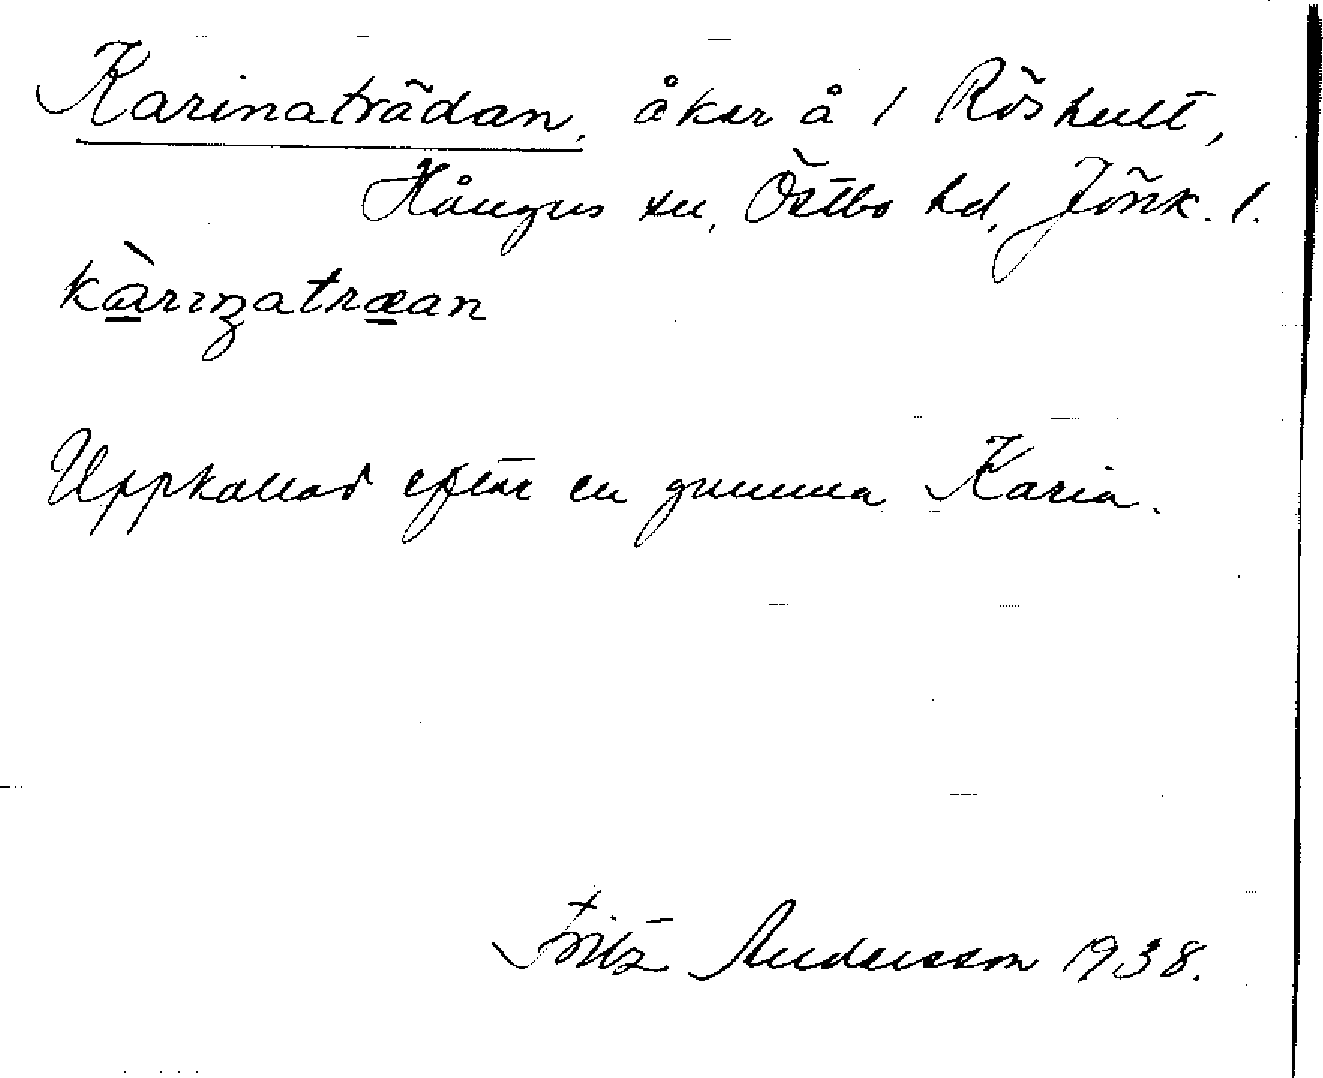 Karinaträdan, åker å 1 Röshult,
Hånger sn, Östbo hd, Jönk. l.
kàrinatræan
Uppkallad efter en gumma Karin.
Fritz Andersson 1938.